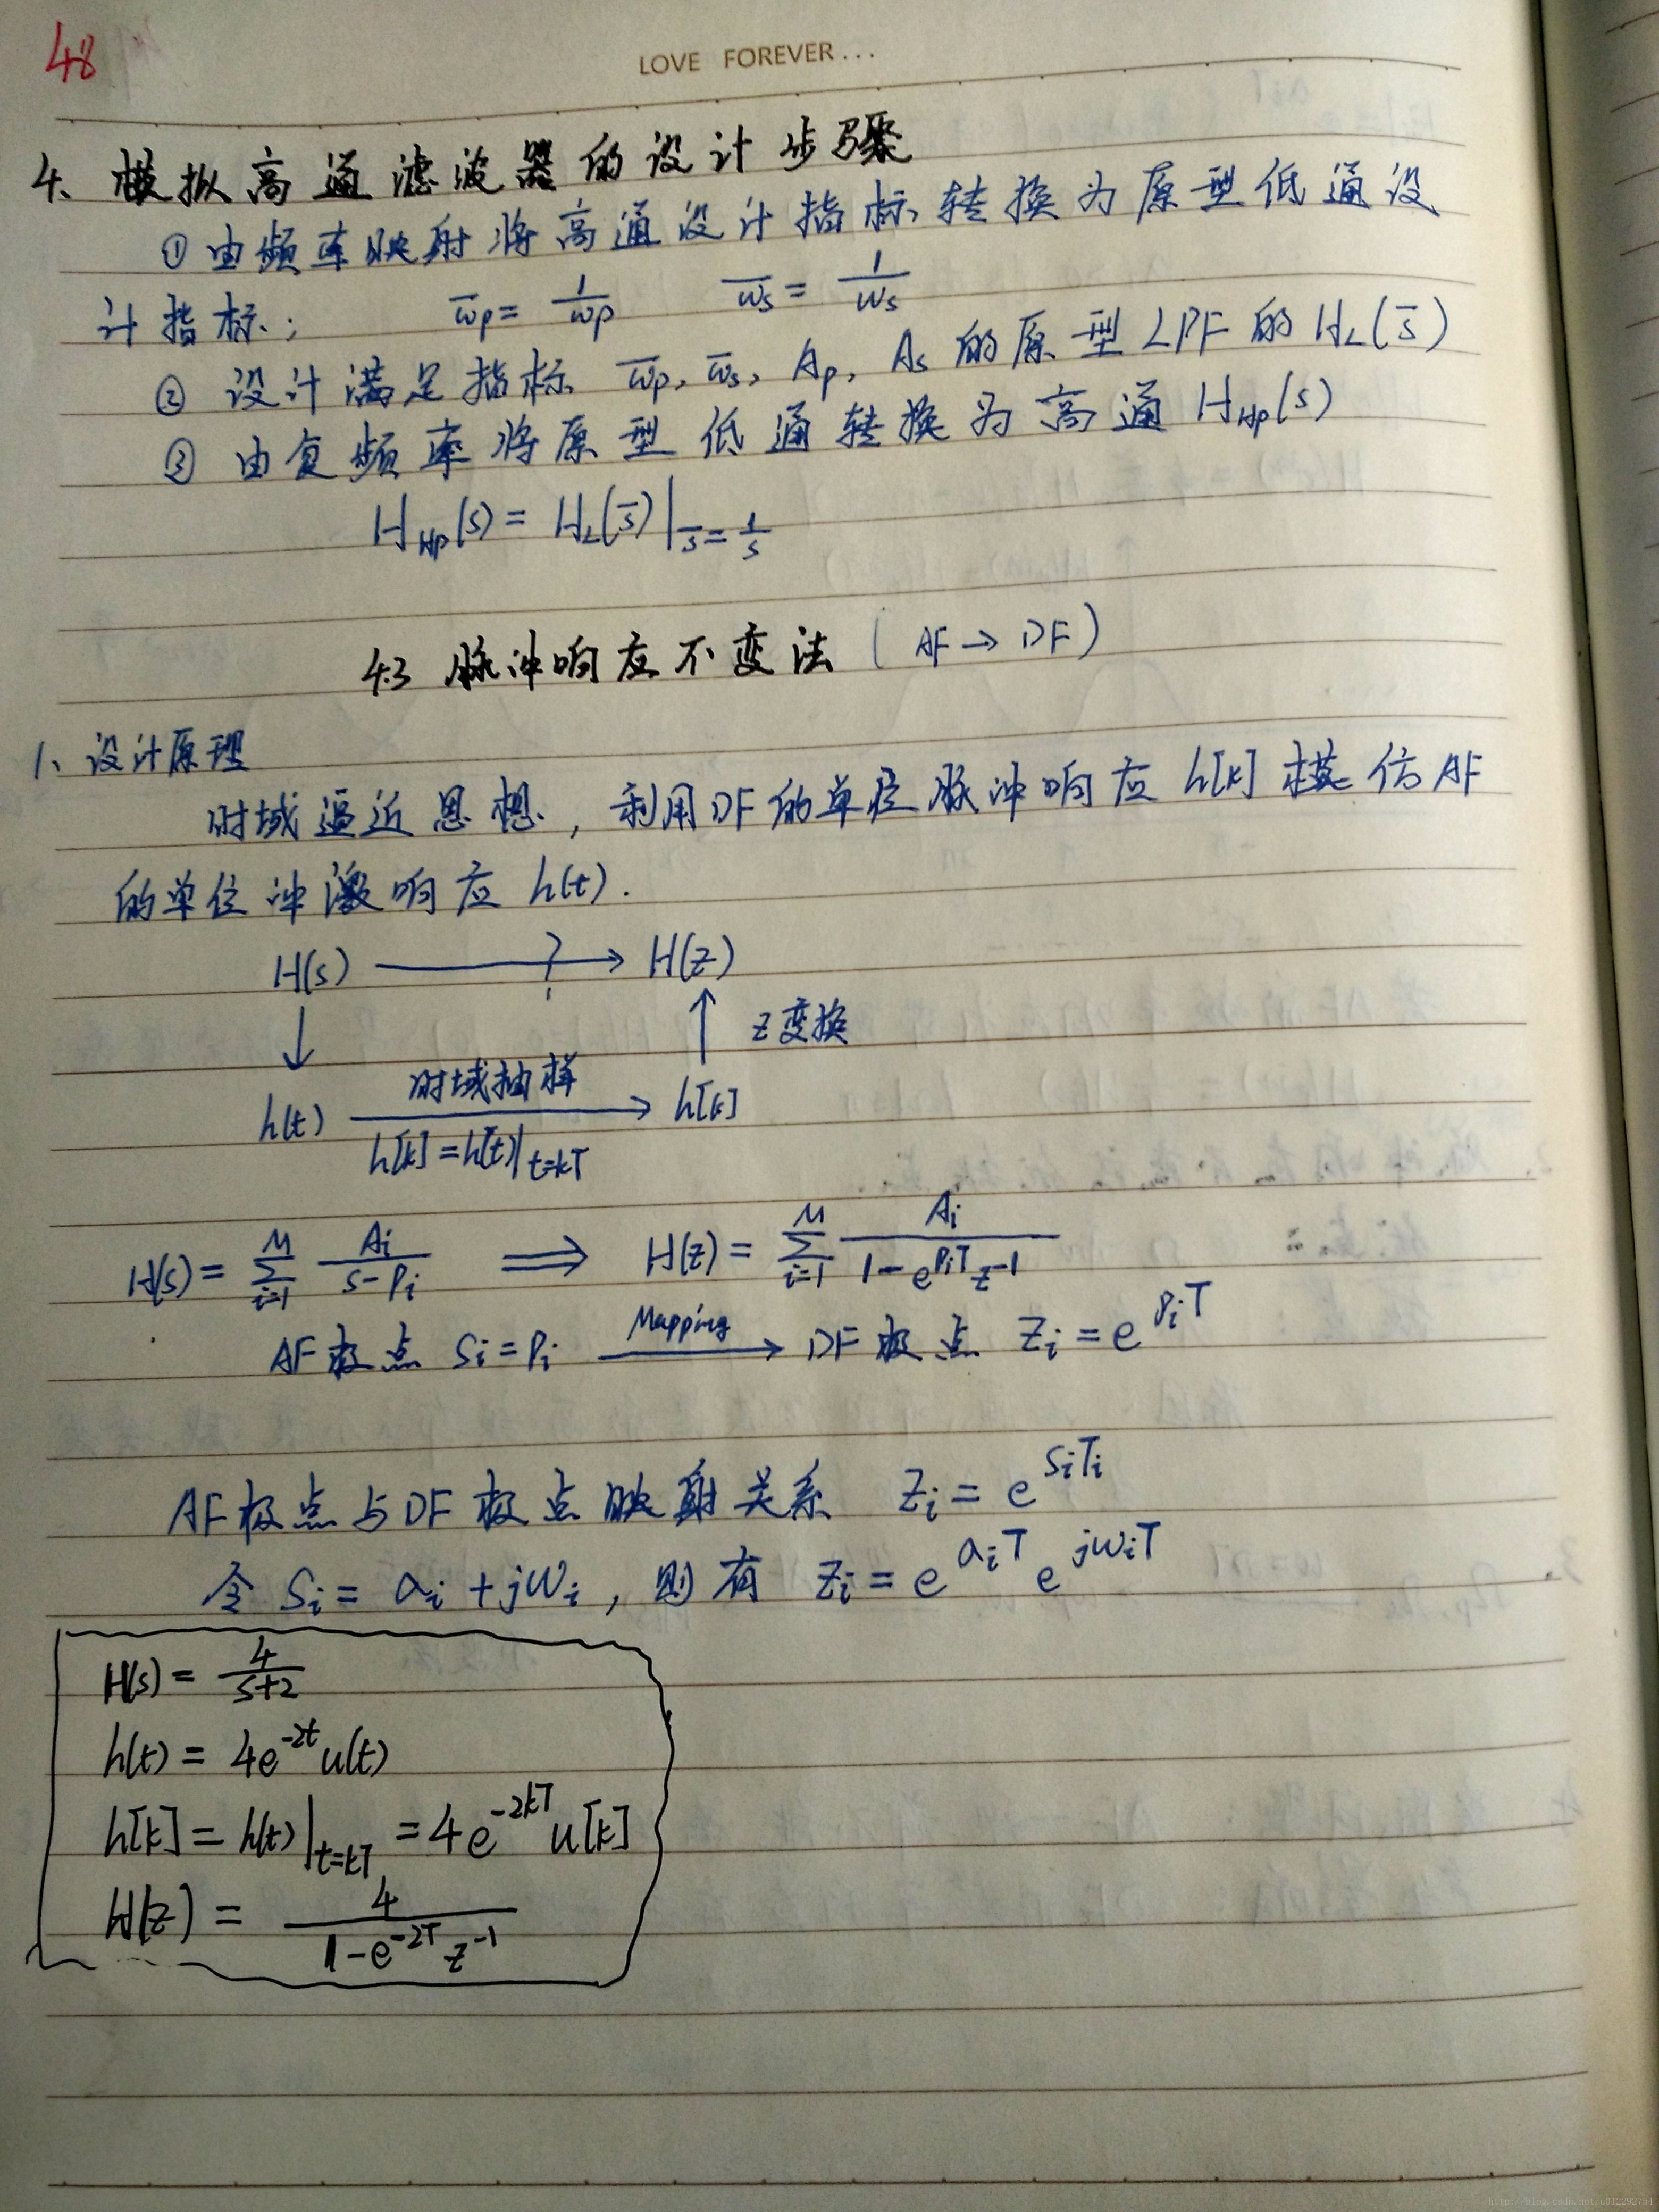 48
LOVE FOREVER...
4、模拟高通滤波器的设计步骤
①由频率映射将高通设计指标转换为原型低通设
计指标； ω̅p = 1/ωp ω̅s = 1/ωs
② 设计满足指标 ω̅p, ω̅s, Ap, As 的原型LPF的HL(s̅)
③ 由复频率将原型低通转换为高通HHp(s)
HHp(s) = HL(s̅)|s̅=1/s
4.3 脉冲响应不变法（AF→DF）
1、设计原理
时域逼近思想，利用DF的单位脉冲响应h[k]模仿AF
的单位冲激响应 h(t).
H(s) ──?──→ H(z)
↓ ↑ z变换
h(t) ──时域抽样──→ h[k]
h[k]=h(t)|t=kT
H(s) = Σ(i=1,M) Ai/(s-Pi) ⟹ H(z) = Σ(i=1,M) Ai/(1-e^{PiT}z^{-1})
AF极点 Si=Pi ──Mapping──→ DF极点 Zi=e^{PiT}
AF极点与DF极点映射关系 Zi=e^{SiTi}
令 Si = ai + jωi，则有 Zi = e^{aiT} e^{jωiT}
H(s) = 4/(s+2)
h(t) = 4e^{-2t}u(t)
h[k] = h(t)|t=kT = 4e^{-2kT}u[k]
H(z) = 4/(1-e^{-2T}z^{-1})